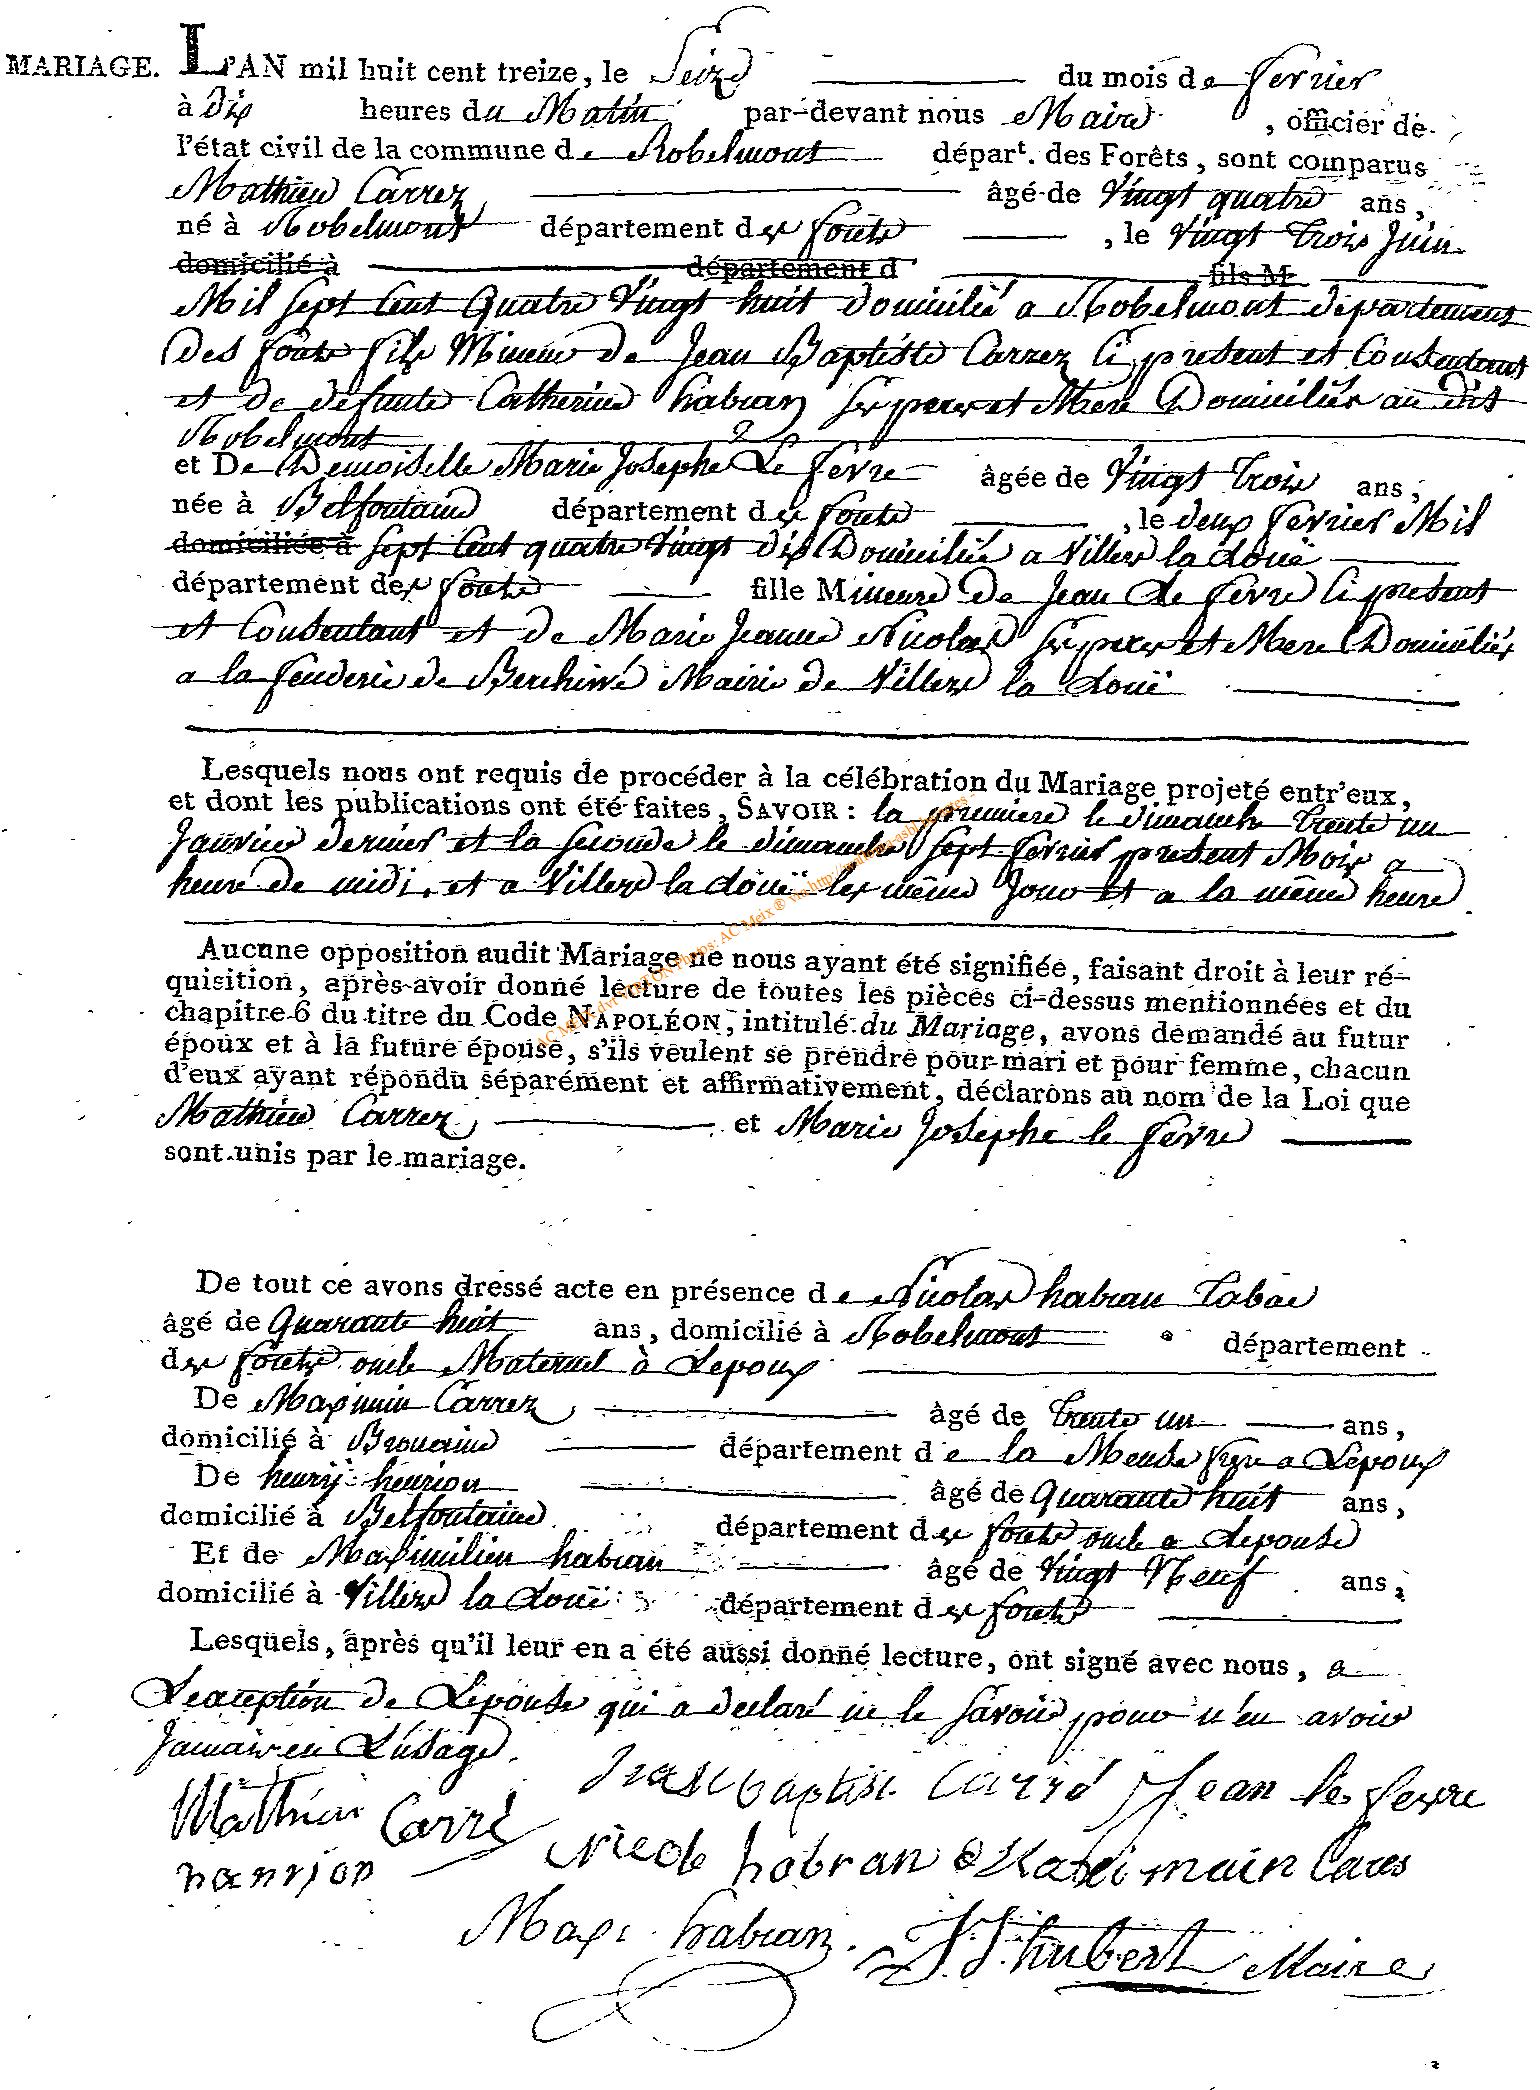 MARIAGE. L'AN mil huit cent treize, le Seize du mois de fevrier
à dix heures du Matin par-devant nous Maire , officier de
l'état civil de la commune de Robelmont départ. des Forêts, sont comparus
Mathieu Carrez âgé de Vingt quatre ans,
né à Robelmont département des forets , le Vingt Trois Juin
domicilié à département d fils M
Mil sept Cent Quatre Vingt huit domicilié a Robelmont departement
des forets fils Mineur de Jean Baptiste Carrez Ci present et Consentant
et de defunte Catherine habran ses pere et Mere Domiciliés au dit
Robelmont
et De Demoiselle Marie Josephe Le fevre âgée de Vingt Trois ans,
née à Belfontaine département des forets , le deux fevrier Mil
domiciliée à sept Cent quatre Vingt dix Domiciliée a Villers la Loue
département des forets fille Mineure De Jean Le fevre Ci present
et Consentant et de Marie Jeanne Nicolas ses pere et Mere Domiciliés
a la fenderie de Berchiwé Mairie de Villers la Loue
Lesquels nous ont requis de procéder à la célébration du Mariage projeté entr'eux,
et dont les publications ont été faites, SAVOIR : la premiere le dimanche Trente un
Janvier dernier et la seconde le dimanche sept fevrier present Mois a
heure de midi, et a Villers la Loue les même Jour et a la même heure
Aucune opposition audit Mariage ne nous ayant été signifiée, faisant droit à leur ré-
quisition, après avoir donné lecture de toutes les pièces ci-dessus mentionnées et du
chapitre 6 du titre du Code NAPOLÉON, intitulé du Mariage, avons demandé au futur
époux et à la future épouse, s'ils veulent se prendre pour mari et pour femme, chacun
d'eux ayant répondu séparément et affirmativement, déclarons au nom de la Loi que
Mathieu Carrez et Marie Josephe le fevre
sont unis par le mariage.
De tout ce avons dressé acte en présence de Nicolas habran Labae
âgé de Quarante huit ans, domicilié à Robelmont département
des forets oncle Maternel à Lepoux
De Maximin Carrez âgé de Trente un ans,
domicilié à Brouaine département de la Meuse frere a Lepoux
De henry henrion âgé de Quarante huit ans,
domicilié à Belfontaine département des forets oncle a Lepouse
Et de Maximilien habran âgé de Vingt Neuf ans,
domicilié à Villers la Loue département des forets
Lesquels, après qu'il leur en a été aussi donné lecture, ont signé avec nous, a
Lexception de Lepouse qui a declaré ne le savoir pour n'en avoir
Jamais eu L'usage.
Mathieu Carré Jean baptiste Carré Jean le fevre
hanrion Nicole habran Maximain Cares
Maxi habran. J. J. hubert Maire